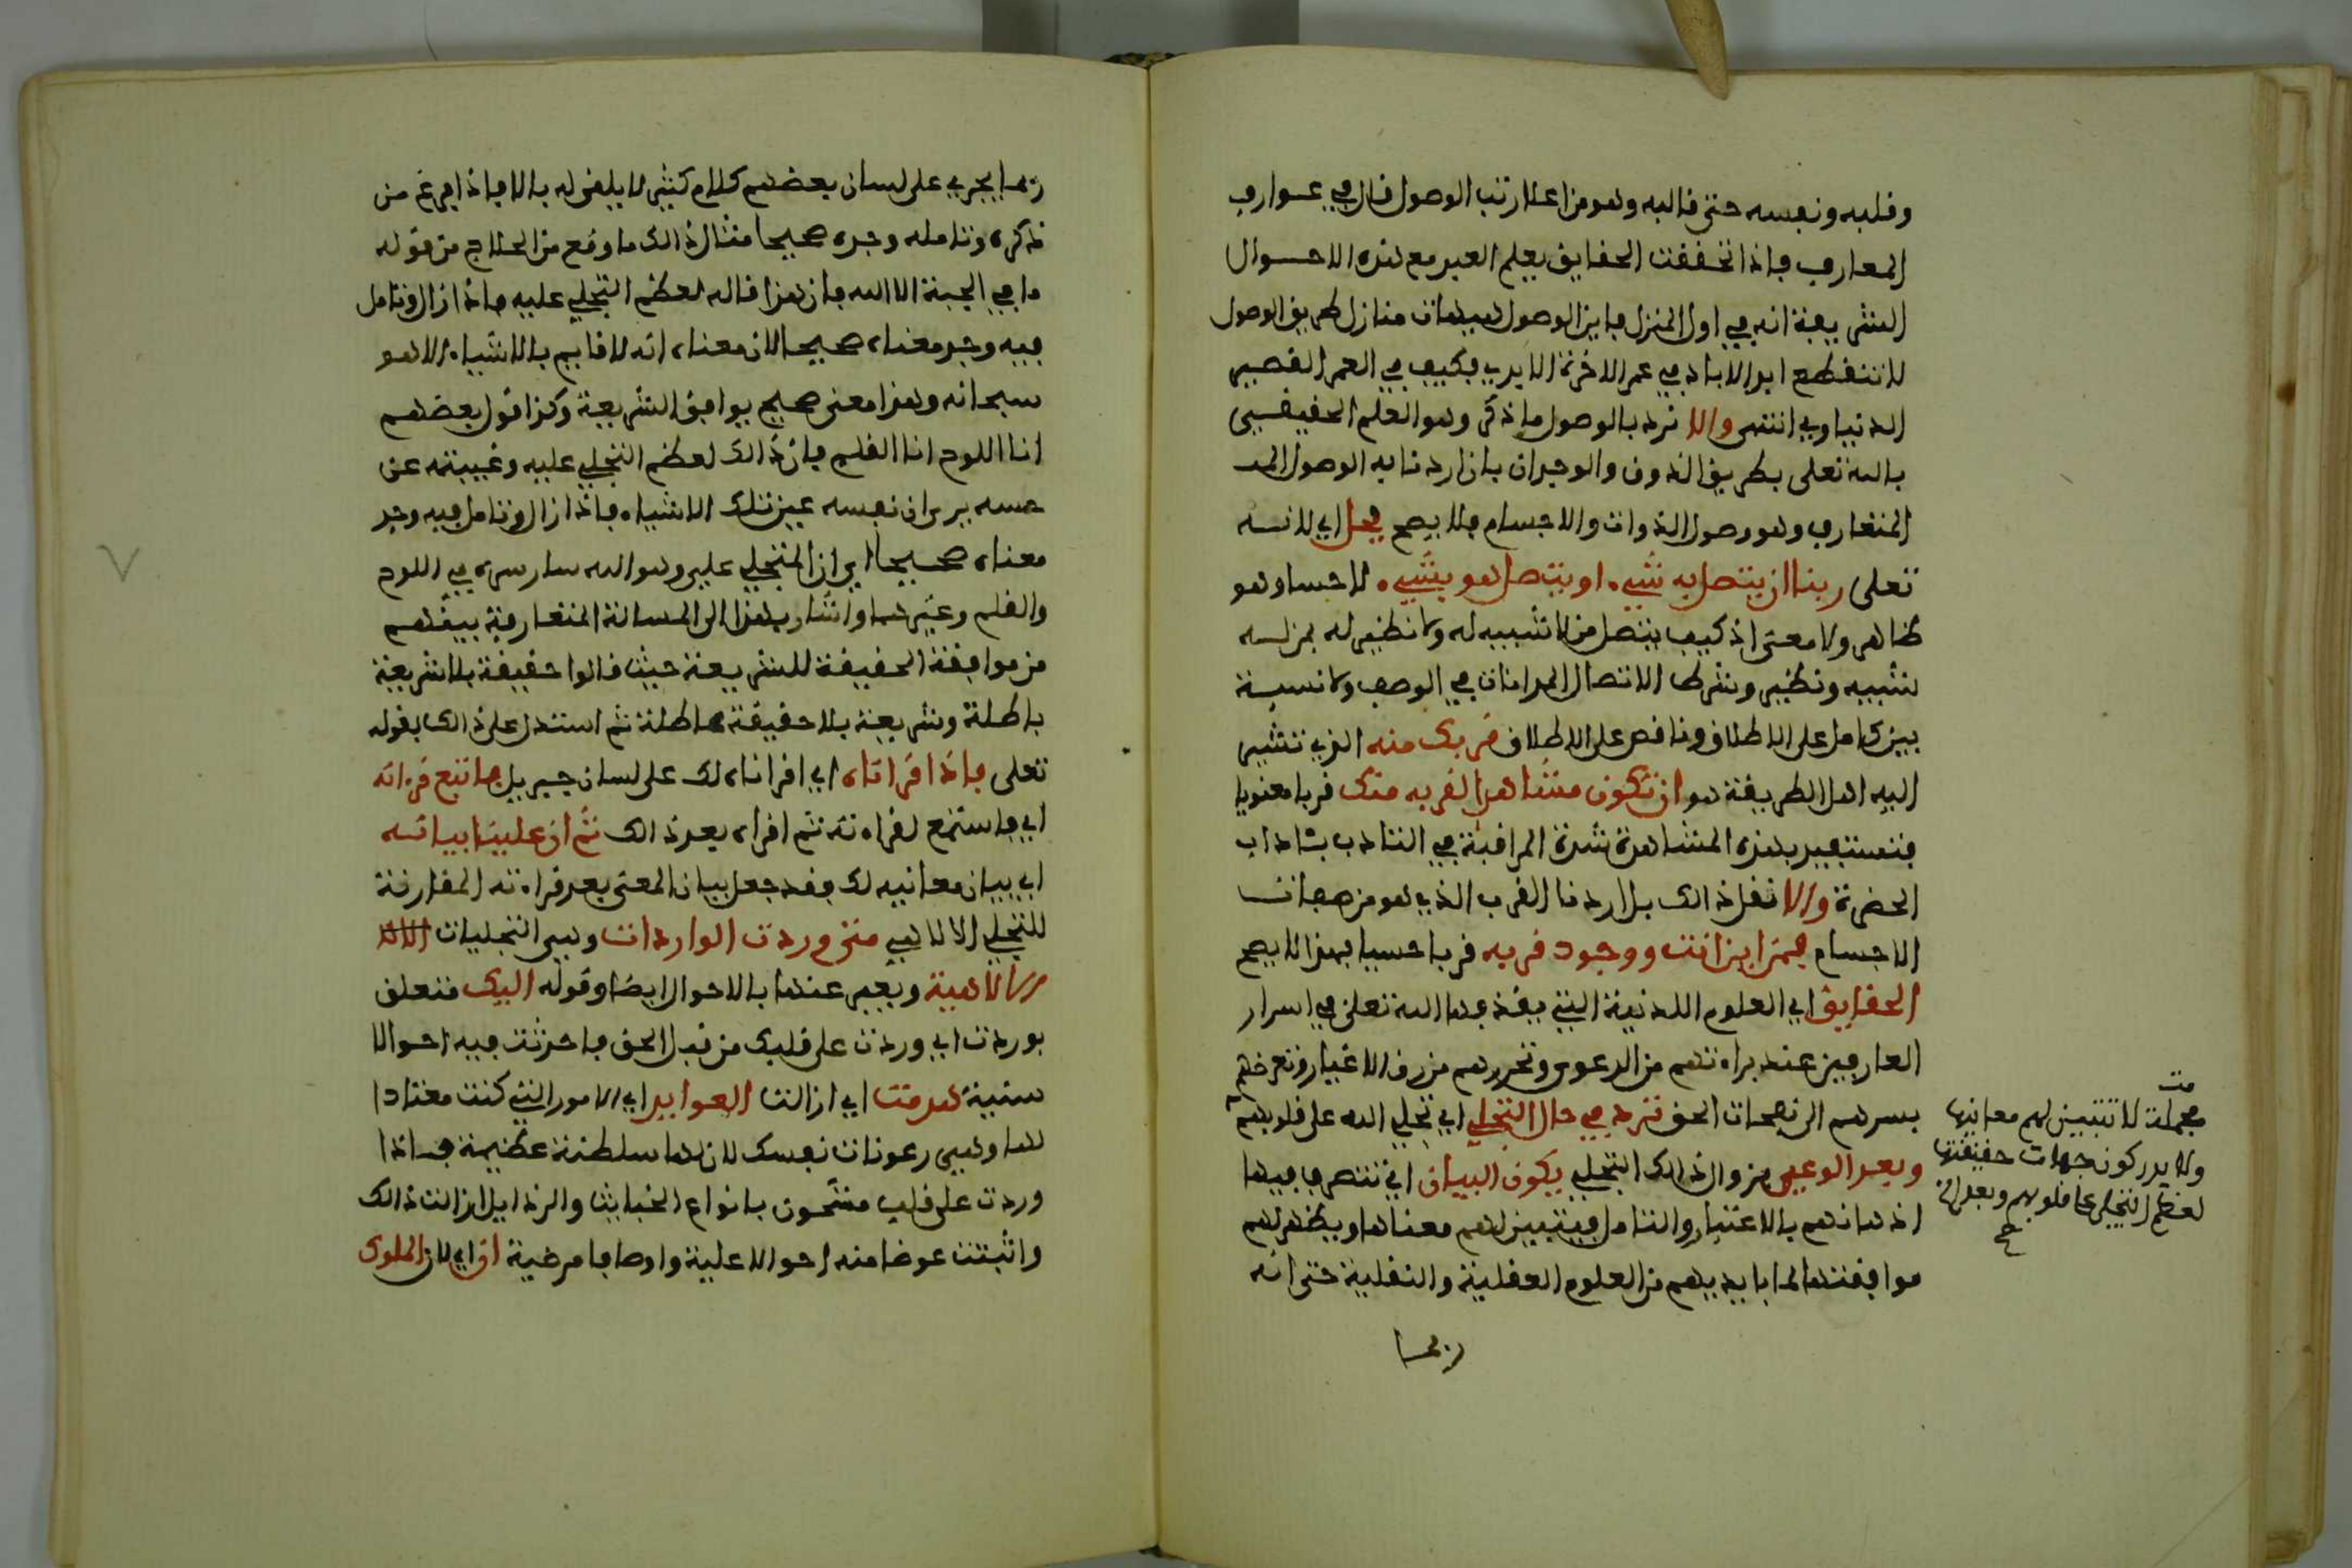 وقلبه ونفسه حتى قالبه وهو من اعلا رتب الوصول قال في عوارف
المعارف فاذا تحققت الحقايق يعلم العبد مع هذه الاحوال
الشريعة انه في اول المنزل فاين الوصول هيهات منازل طريق الوصول
لا تنقطع ابد الاباد في عمر الاخرة الابدي فكيف في العمر القصير
الدنياوي انتهى والا نرد بالوصول ما ذكر وهو العلم الحقيقي
بالله تعلى بطريق الذوق والوجدان بان اردنا به الوصول
المتعارف وهو وصول الذوات والاجسام فلا يصح فجل اي لانه
تعلى ربنا ان يتصل به شيء او يتصل هو بشيء لا حسا وهو
ظاهر ولا معنى اذ كيف يتصل من لا شبيه له ولا نظير له بمن له
شبيه ونظير وشرط الاتصال المداناة في الوصف ولا نسبة
بين كامل على الاطلاق وناقص على الاطلاق قربك منه الذي تشير
اليه اهل الطريقة هو ان تكون مشاهدا لقربه منك قربا معنويا
فتستفيد بهذه المشاهدة شدة المراقبة في التادب باداب
الحضرة والا نقل ذالك بل اردنا القرب الذي هو من صفات
الاجسام فمن اين انت ووجود قربه قربا حسيا فهذا لا يصح
الحقايق اي العلوم اللدنية التي يقذفها الله تعلى في اسرار
العارفين عند براءتهم من الدعوى وتحررهم من رق الاغيار وتعرضهم
بسرهم الى نفحات الحق ترد في حال التجلي اي تجلي الله على قلوبهم
وبعد الوعي زوال ذالك التجلي يكون البيان اي تتصرف فيها
اذهانهم بالاعتبار والتامل فيتبين لهم معناها ويظهر لهم
موافقتها لما بايديهم من العلوم العقلية والنقلية حتى انه
ربما
مجملة لا تتبين لهم معانيها
ولا يدركون جهات حقيقتها
لعظم التجلي على قلوبهم وبعد
ربما يجري على لسان بعضهم كلام كثير لا يلقي له بالا فاذا فرغ من
ذكره وتامله وجده صحيحا مثال ذالك ما وقع من الحلاج من قوله
ما في الجبة الا الله فان هذا قاله لعظم التجلي عليه فاذا زال وتامل
فيه وجد معناه صحيحا لان معناه انه لا قايم بالاشياء الا هو
سبحانه وهذا معنى صحيح يوافق الشريعة وكذا قول بعضهم
انا اللوح انا القلم فان ذالك لعظم التجلي عليه وغيبته عن
حسه يرى ان نفسه عين تلك الاشياء فاذا زال وتامل فيه وجد
معناه صحيحا اي ان المتجلي عليه وهو الله سار سره في اللوح
والقلم وغيرهما واشار بهذا الى المسالة المتعارفة بينهم
من موافقة الحقيقة للشريعة حيث قالوا حقيقة بلا شريعة
باطلة وشريعة بلا حقيقة عاطلة ثم استدل على ذالك بقوله
تعلى فاذا قراناه اي اقراناه لك على لسان جبريل فاتبع قرءانه
اي فاستمع لقراءته ثم اقراه بعد ذالك ثم ان علينا بيانه
اي بيان معانيه لك فقد جعل بيان المعنى بعد قراءته المقارنة
للتجلي الالاهي متى وردت الواردات وهي التجليات
الالاهية ويعبر عنها بالاحوال ايضا وقوله اليك متعلق
بوردت اي وردت على قلبك من قبل الحق فاحدثت فيه احوالا
سنية هدمت اي ازالت العوايد اي الامور التي كنت معتادا
لها وهي رعونات نفسك لان لها سلطنة عظيمة فاذا
وردت على قلب مشحون بانواع الخبايث والرذايل ازالت ذالك
واثبتت عوضا منه احوالا علية واوصافا مرضية ان اي لان الملوك